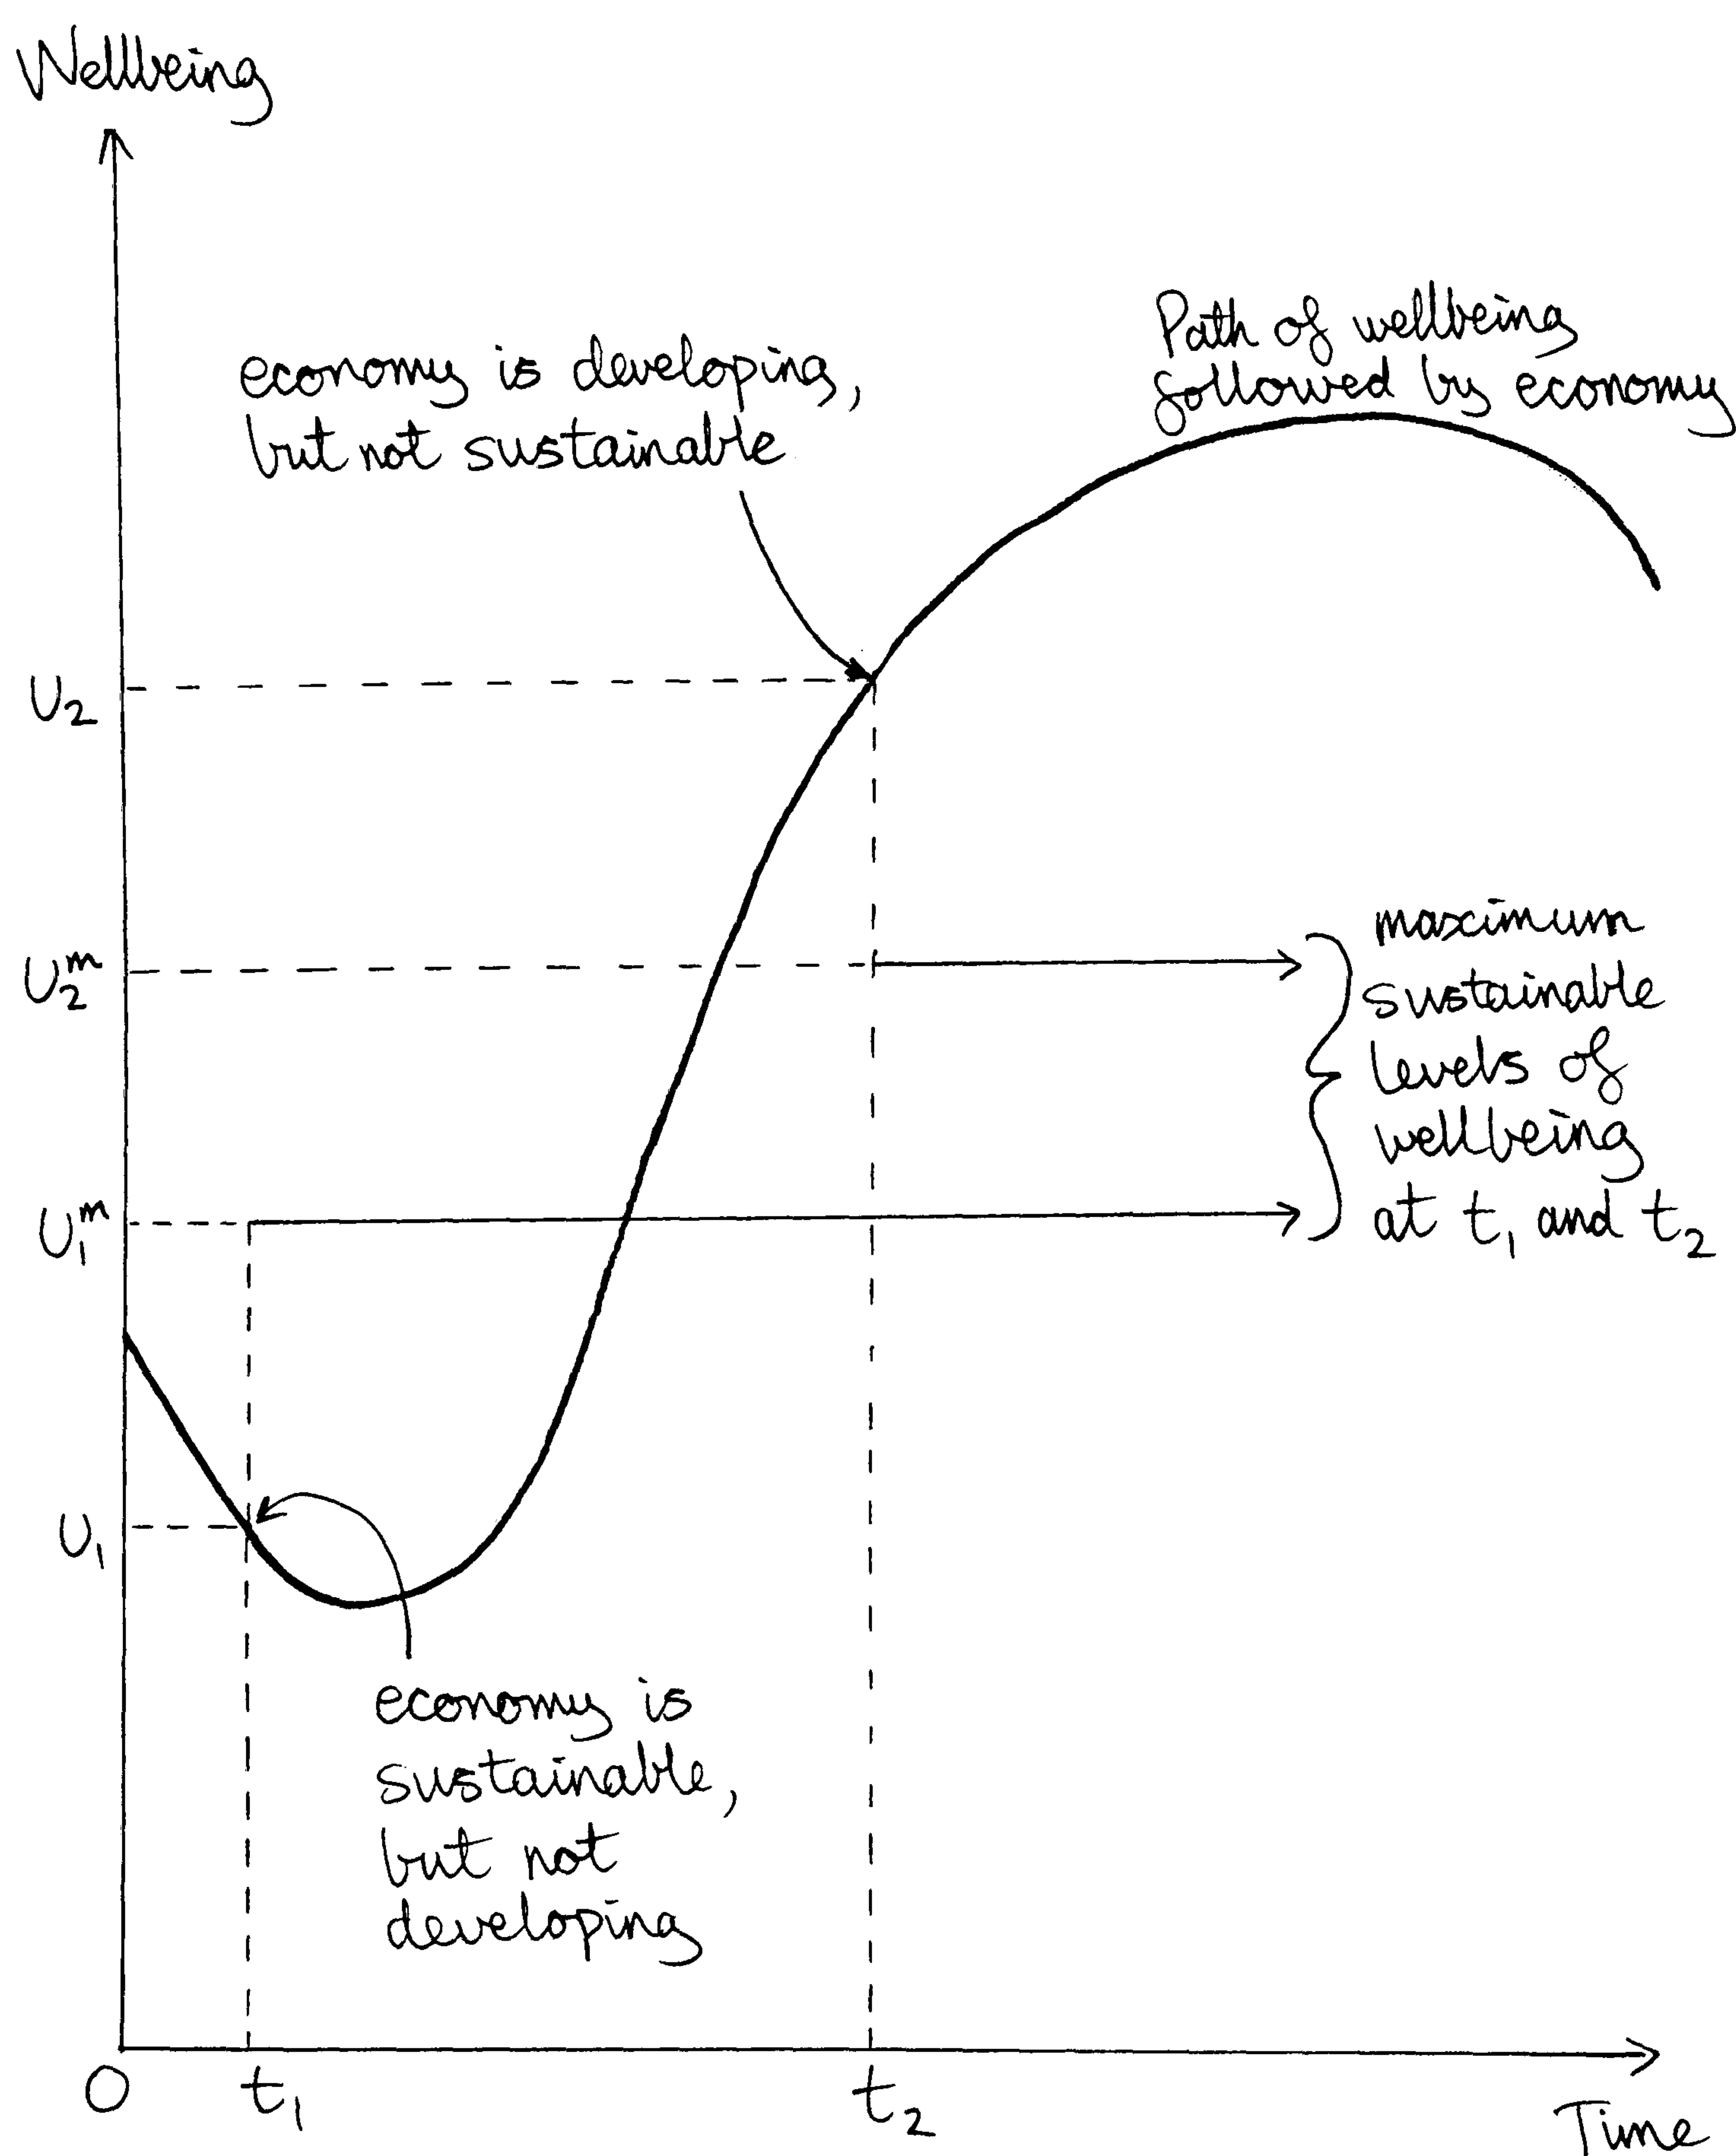 Wellbeing
economy is developing,
but not sustainable
Path of wellbeing
followed by economy
U₂
U₂ᵐ
maximum
sustainable
levels of
wellbeing
at t₁ and t₂
U₁ᵐ
U₁
economy is
sustainable,
but not
developing
0
t₁
t₂
Time